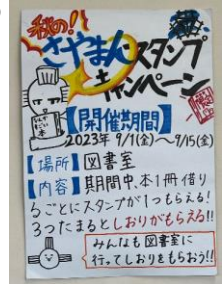 秋の!
さやまんスタンプ
キャンペーン
【開催期間】
2023年 9/1(金)〜9/15(金)
【場所】図書室
【内容】期間中、本1冊借り
るごとにスタンプが1つもらえる!
3つたまるとしおりがもらえる!!
みんなも図書室に
行ってしおりをもらおう!!